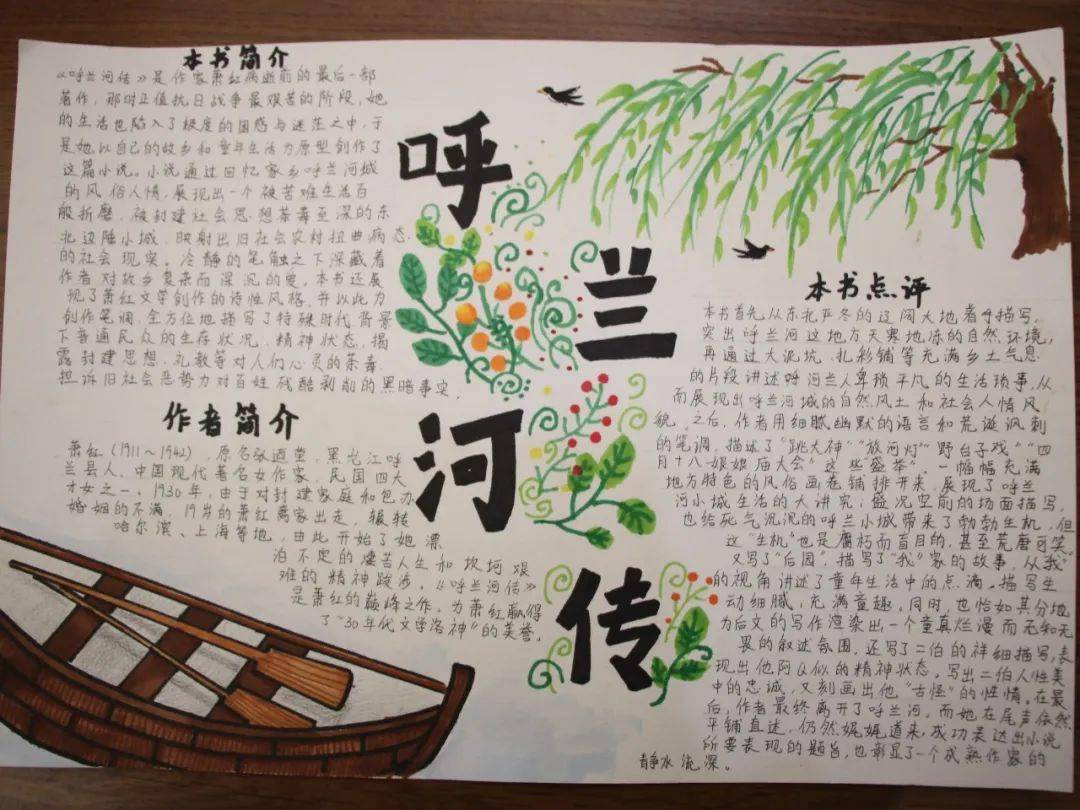 本书简介
《呼兰河传》是作家萧红病逝前的最后一部
著作，那时正值抗日战争最艰苦的阶段，她
的生活也陷入了极度的困惑与迷茫之中，于
是她以自己的故乡和童年生活为原型创作了
这篇小说。小说通过回忆家乡呼兰河城
的风俗人情，展现出一个被苦难生活百
般折磨、被封建社会思想荼毒至深的东
北边陲小城，映射出旧社会农村扭曲病态
的社会现实。冷静的笔触之下深藏着
作者对故乡复杂而深沉的爱。本书还展
现了萧红文学创作的诗性风格，并以此为
创作笔调，全方位地描写了特殊时代背景
下普通民众的生存状况、精神状态，揭
露封建思想、礼教等对人们心灵的荼毒，
控诉旧社会恶势力对百姓残酷剥削的黑暗事实。
作者简介
萧红（1911～1942），原名张迺莹，黑龙江呼
兰县人，中国现代著名女作家，民国四大
才女之一。1930年，由于对封建家庭和包办
婚姻的不满，19岁的萧红离家出走，辗转
哈尔滨、上海等地，由此开始了她漂
泊不定的凄苦人生和坎坷艰
难的精神跋涉。《呼兰河传》
是萧红的巅峰之作。为萧红赢得
了“30年代文学洛神”的美誉。
呼
兰
河
传
本书点评
本书首先从东北严冬的辽阔大地着呼描写，
突出呼兰河这地方天寒地冻的自然环境，
再通过大泥坑、扎彩铺等充满乡土气息
的片段讲述呼河兰人卑琐平凡的生活琐事，从
而展现出呼兰河城的自然风土和社会人情风
貌。之后，作者用细腻幽默的语言和荒诞讽刺
的笔调，描述了“跳大神”“放河灯”“野台子戏”“四
月十八娘娘庙大会”这些盛举。一幅幅充满
地方特色的风俗画卷铺排开来，展现了呼兰
河小城生活的大讲究；盛况空前的场面描写，
也给死气沉沉的呼兰小城带来了勃勃生机，但
这“生机”也是腐朽而盲目的，甚至荒唐可笑。
又写了“后园”，描写了“我”家的故事，从“我”
的视角讲述了童年生活中的点滴。描写生
动细腻，充满童趣。同时，也恰如其分地
为后文的写作渲染出一个童真烂漫而无知无
畏的叙述氛围。还写了二伯的祥细描写，表
现出他阿Q似的精神状态。写出二伯人性美
中的忠诚，又刻画出他“古怪”的性情。在最
后，作者最终离开了呼兰河。而她在尾声依然
平铺直述，仍然娓娓道来，成功表达出小说
所要表现的题旨，也彰显了一个成熟作家的
静水流深。